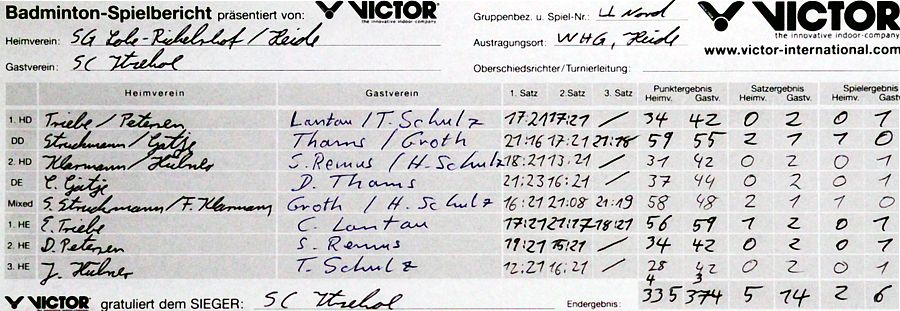 Badminton-Spielbericht präsentiert von: VICTOR the innovative indoor-company Gruppenbez. u. Spiel-Nr.: LL Nord VICTOR the innovative indoor-company
Heimverein: SG Lohe-Rickelshof / Heide Austragungsort: WHG, Heide www.victor-international.com
Gastverein: SC Itzehol Oberschiedsrichter/Turnierleitung:
Heimverein Gastverein 1. Satz 2. Satz 3. Satz Punktergebnis Heimv. Gastv. Satzergebnis Heimv. Gastv. Spielergebnis Heimv. Gastv.
1. HD Triebe / Petersen Lantau / T. Schulz 17:21 17:21 / 34 42 0 2 0 1
DD Struckmann / Gätje Thams / Groth 21:16 17:21 21:18 59 55 2 1 1 0
2. HD Klarmann / Hübner S. Remus / H. Schulz 18:21 13:21 / 31 42 0 2 0 1
DE C. Gätje D. Thams 21:23 16:21 / 37 44 0 2 0 1
Mixed S. Struckmann / F. Klarmann Groth / H. Schulz 16:21 21:08 21:19 58 48 2 1 1 0
1. HE E. Triebe C. Lantau 17:21 21:17 18:21 56 59 1 2 0 1
2. HE D. Petersen S. Remus 19:21 15:21 / 34 42 0 2 0 1
3. HE J. Hübner T. Schulz 12:21 16:21 / 28 42 0 2 0 1
4 3
VICTOR gratuliert dem SIEGER: SC Itzehol Endergebnis: 335 374 5 14 2 6